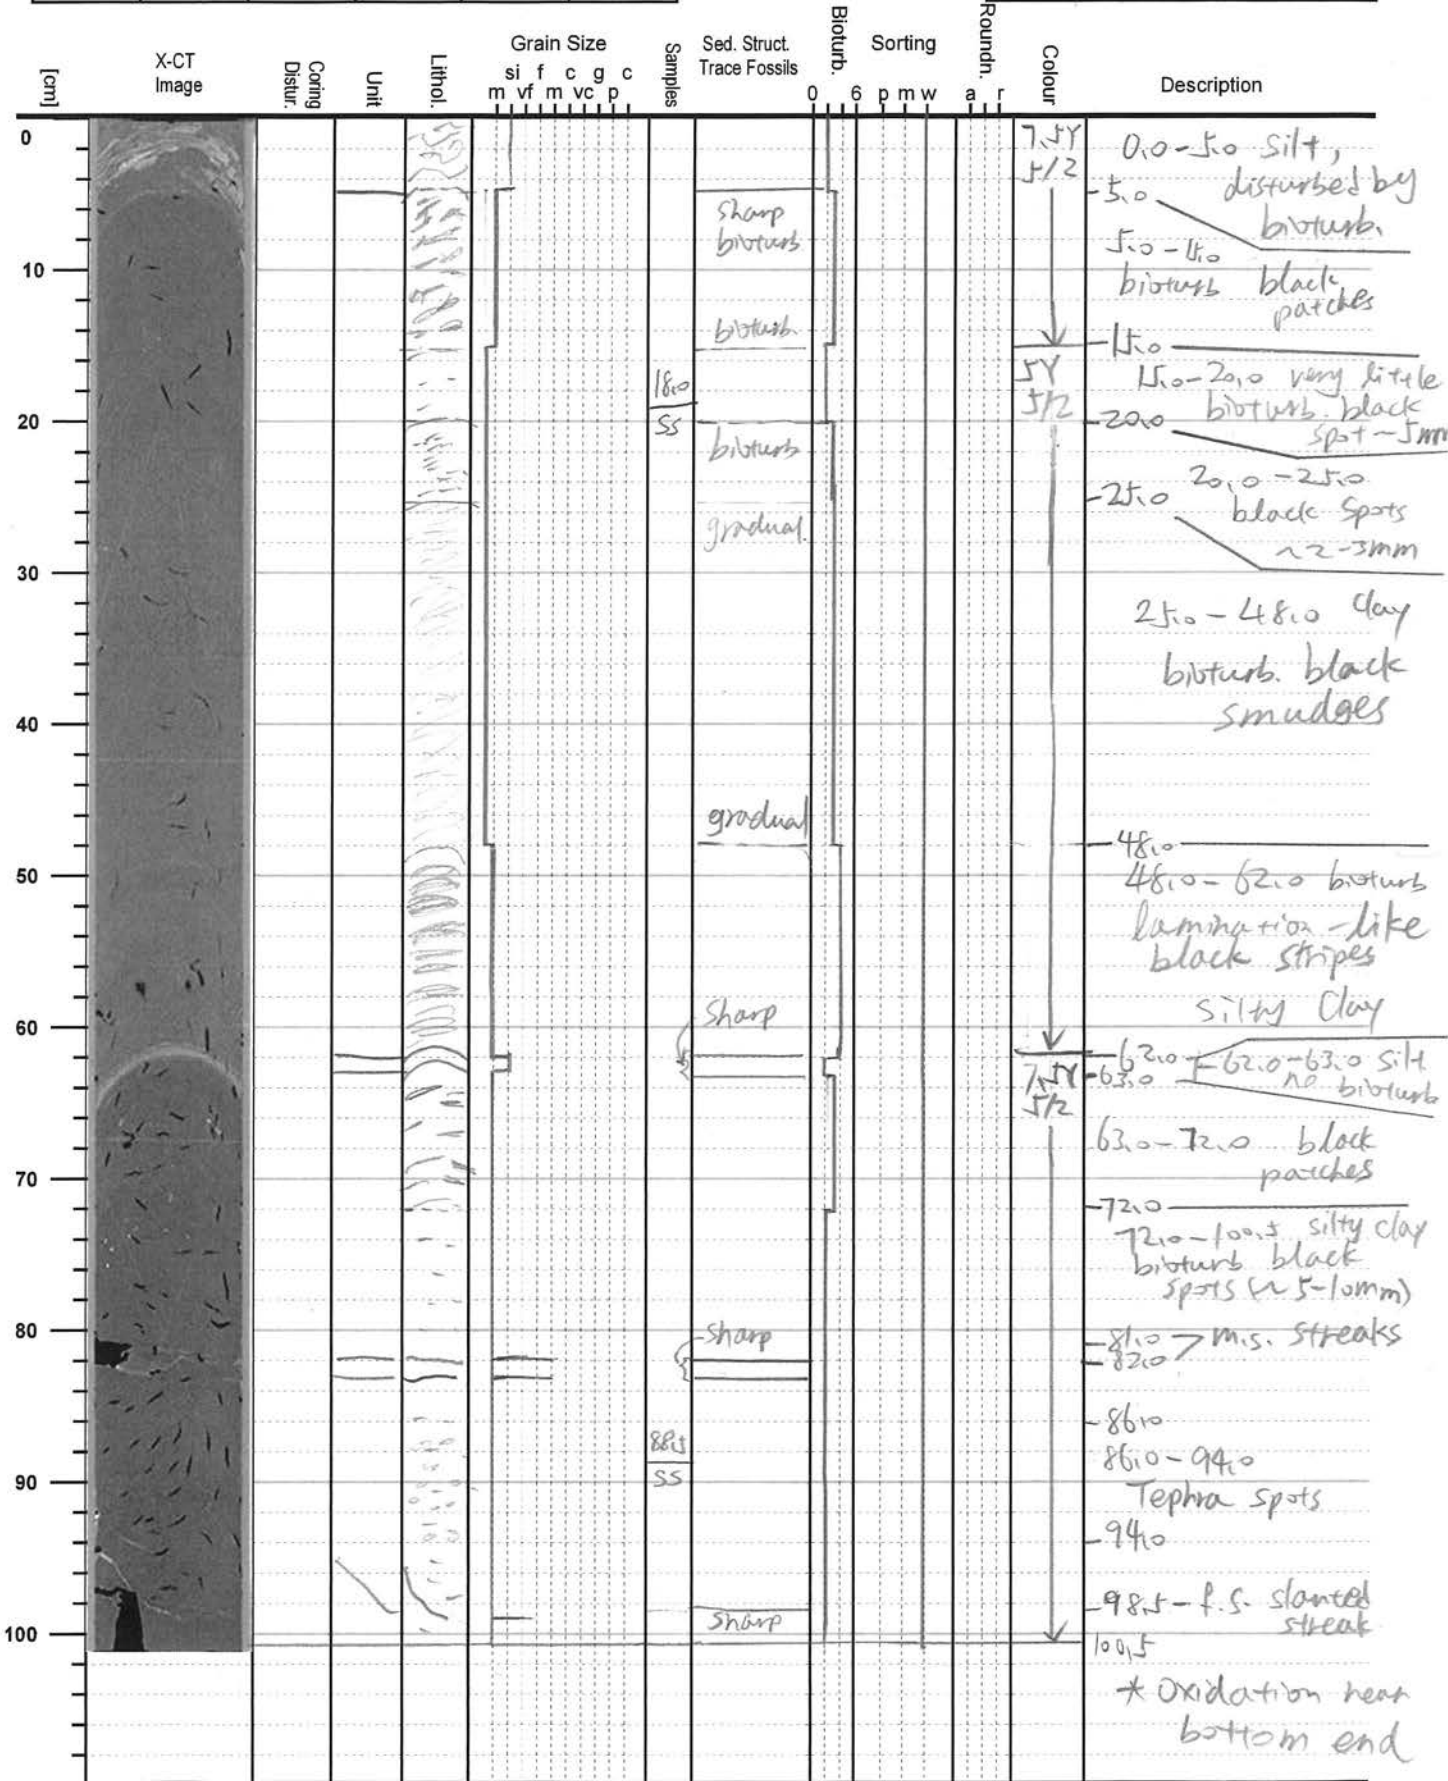 [cm]
X-CT
Image
Coring
Distur.
Unit
Lithol.
Grain Size
si f c g c
m vf m vc p
Samples
Sed. Struct.
Trace Fossils
Bioturb.
0 6
Sorting
p m w
Roundn.
a r
Colour
Description
0
10
20
30
40
50
60
70
80
90
100
18.0
SS
88.5
SS
sharp
bioturb
bioturb.
bioturb
gradual.
gradual
Sharp
sharp
sharp
7.5Y
5/2
5Y
5/2
7.5Y
5/2
0.0-5.0 silt,
disturbed by
bioturb.
5.0
5.0-15.0
bioturb black
patches
15.0
15.0-20.0 very little
bioturb. black
spot ~5mm
20.0
20.0-25.0
black spots
~2-3mm
25.0
25.0-48.0 clay
bioturb. black
smudges
48.0
48.0-62.0 bioturb
lamination-like
black stripes
silty clay
62.0
63.0
62.0-63.0 silt
no bioturb
63.0-72.0 black
patches
72.0
72.0-100.5 silty clay
bioturb black
spots (~5-10mm)
81.0
82.0 > m.s. streaks
86.0
86.0-94.0
Tephra spots
94.0
98.5 - f.s. slanted
streak
100.5
* Oxidation near
bottom end